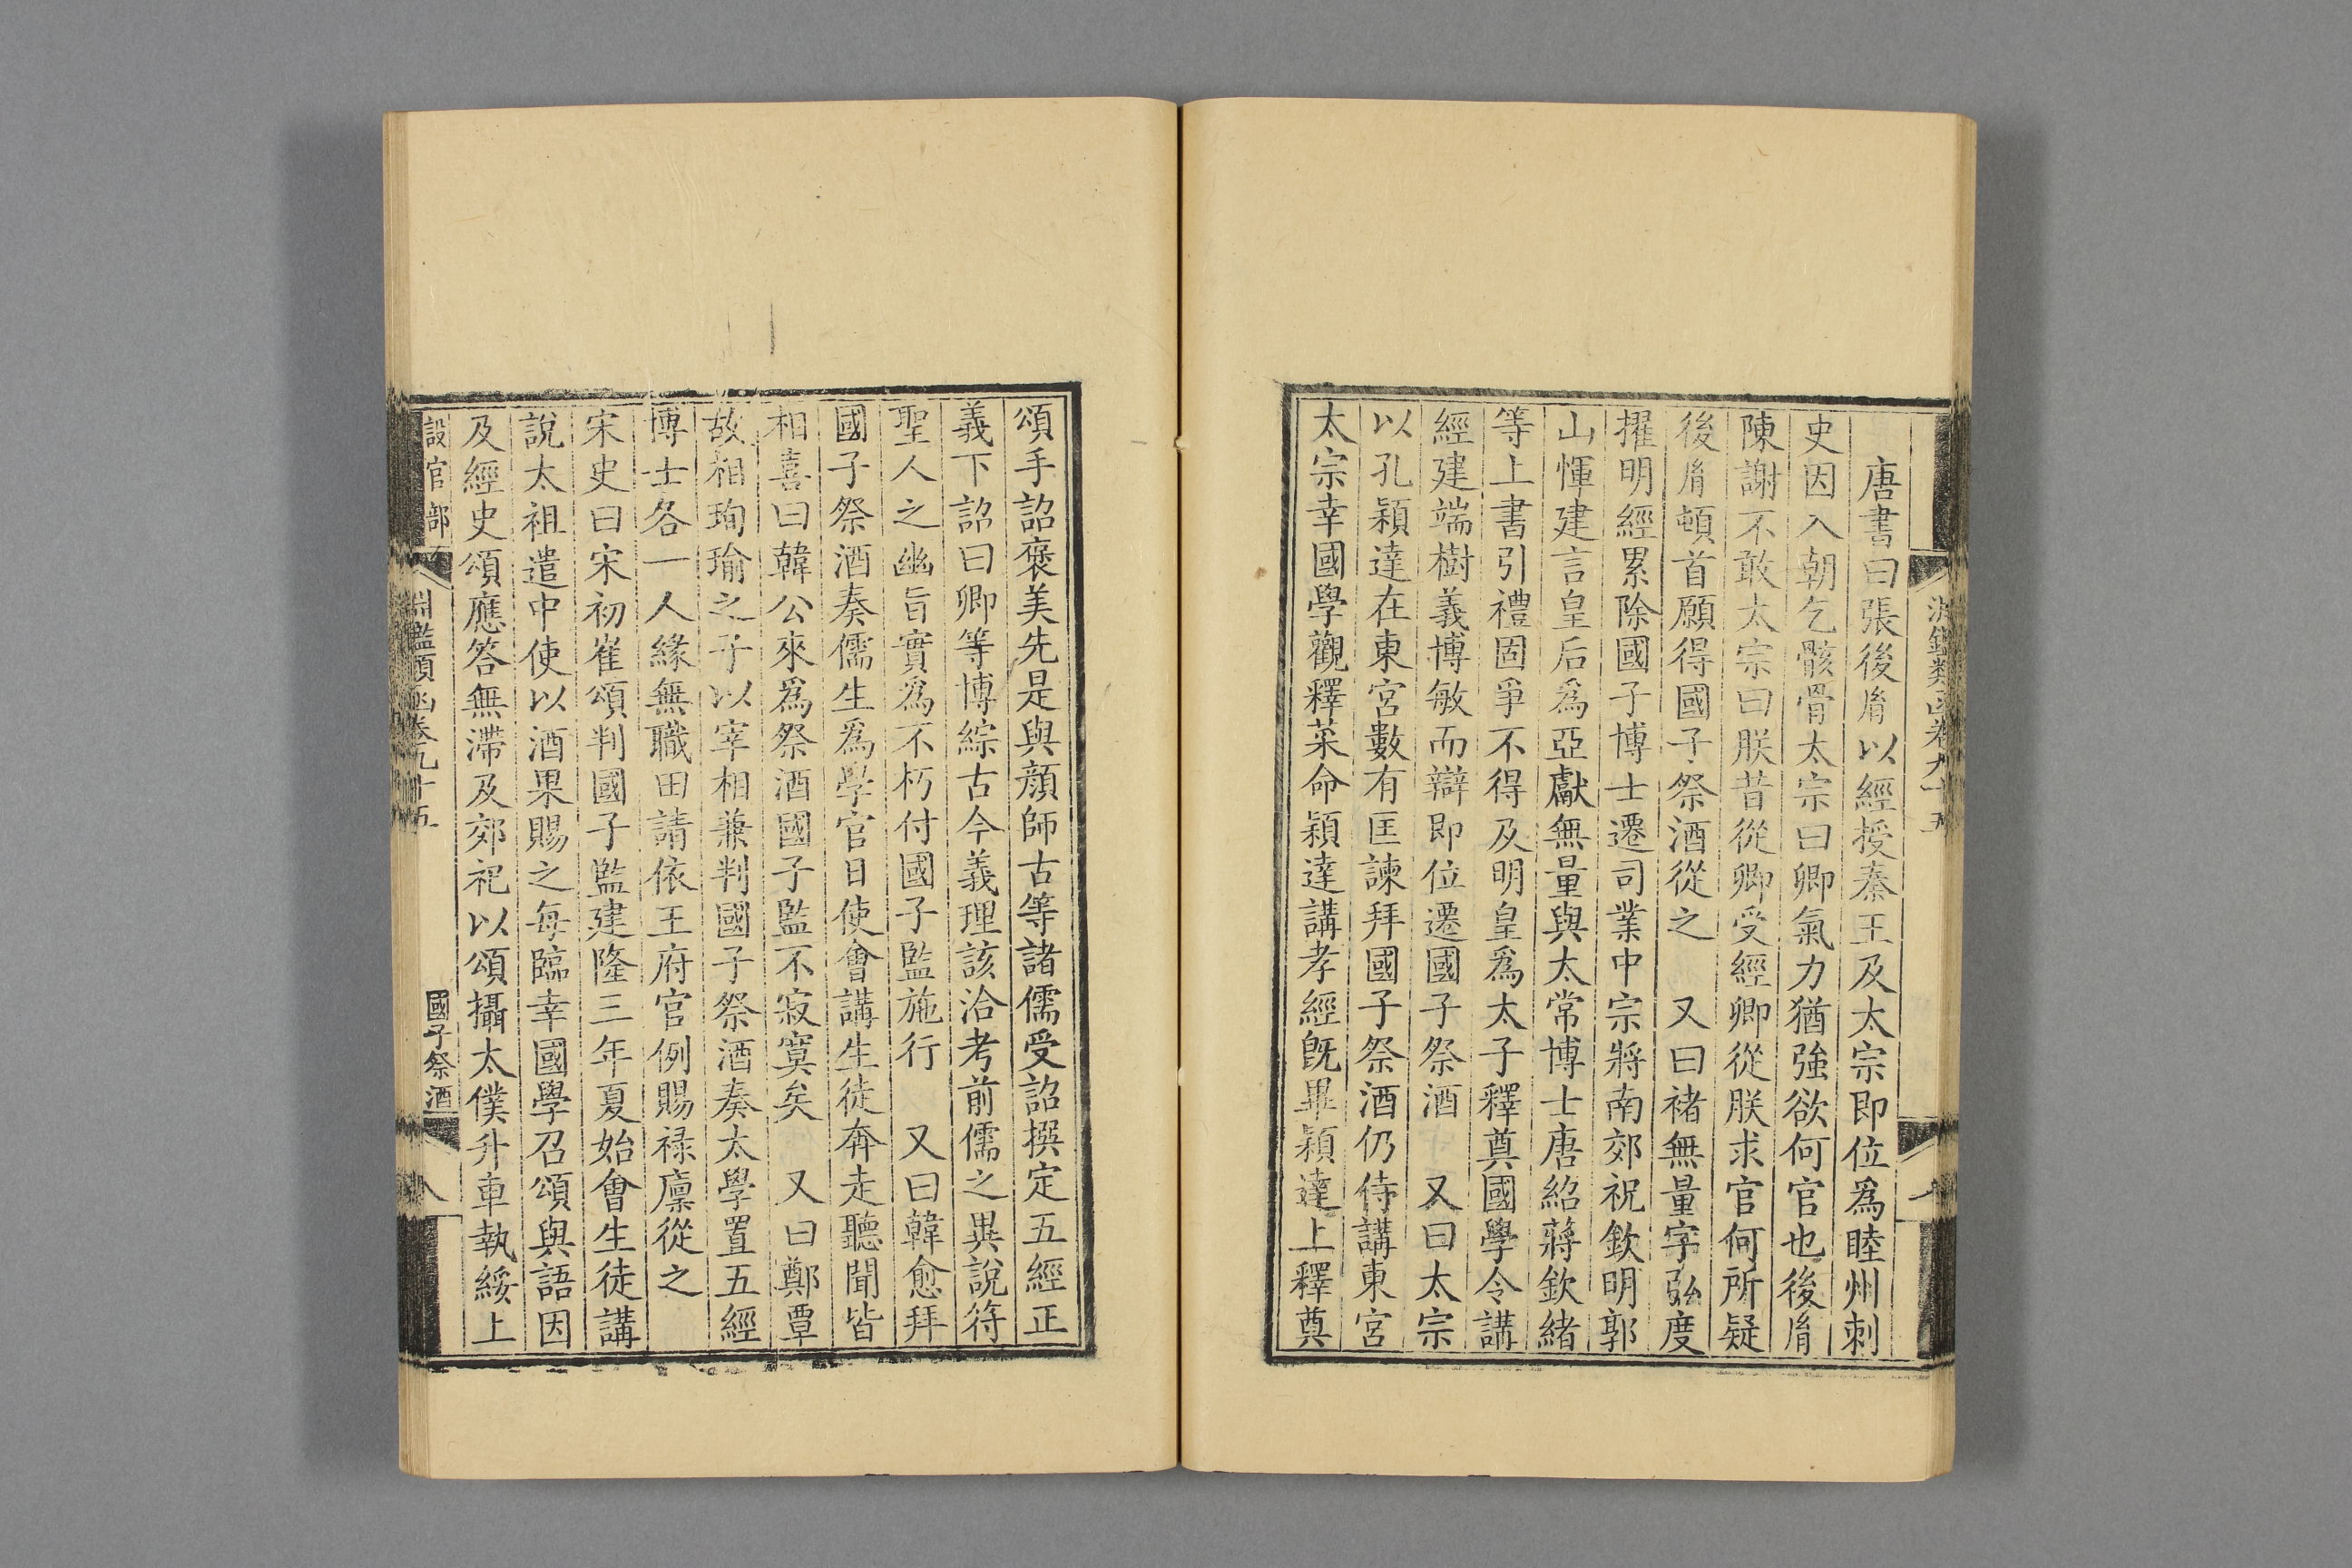 唐書曰張後胤以經授秦王及太宗即位爲睦州刺
史因入朝乞骸骨太宗曰卿氣力猶強欲何官也後胤
陳謝不敢太宗曰朕昔從卿受經卿從朕求官何所疑
後胤頓首願得國子祭酒從之　又曰褚無量字弘度
擢明經累除國子博士遷司業中宗將南郊祝欽明郭
山惲建言皇后爲亞獻無量與太常博士唐紹蔣欽緒
等上書引禮固爭不得及明皇爲太子釋奠國學令講
經建端樹義博敏而辯即位遷國子祭酒　又曰太宗
以孔穎達在東宮數有匡諫拜國子祭酒仍侍講東宮
太宗幸國學觀釋菜命穎達講孝經既畢穎達上釋奠
頌手詔褒美先是與顏師古等諸儒受詔撰定五經正
義下詔曰卿等博綜古今義理該洽考前儒之異說符
聖人之幽旨實爲不朽付國子監施行　又曰韓愈拜
國子祭酒奏儒生爲學官日使會講生徒奔走聽聞皆
相喜曰韓公來爲祭酒國子監不寂寞矣　又曰鄭覃
故相珣瑜之子以宰相兼判國子祭酒奏太學置五經
博士各一人緣無職田請依王府官例賜祿廩從之
宋史曰宋初崔頌判國子監建隆三年夏始會生徒講
說太祖遣中使以酒果賜之每臨幸國學召頌與語因
及經史頌應答無滯及郊祀以頌攝太僕升車執綏上
設官部　淵鑑類函卷九十五　國子祭酒　八